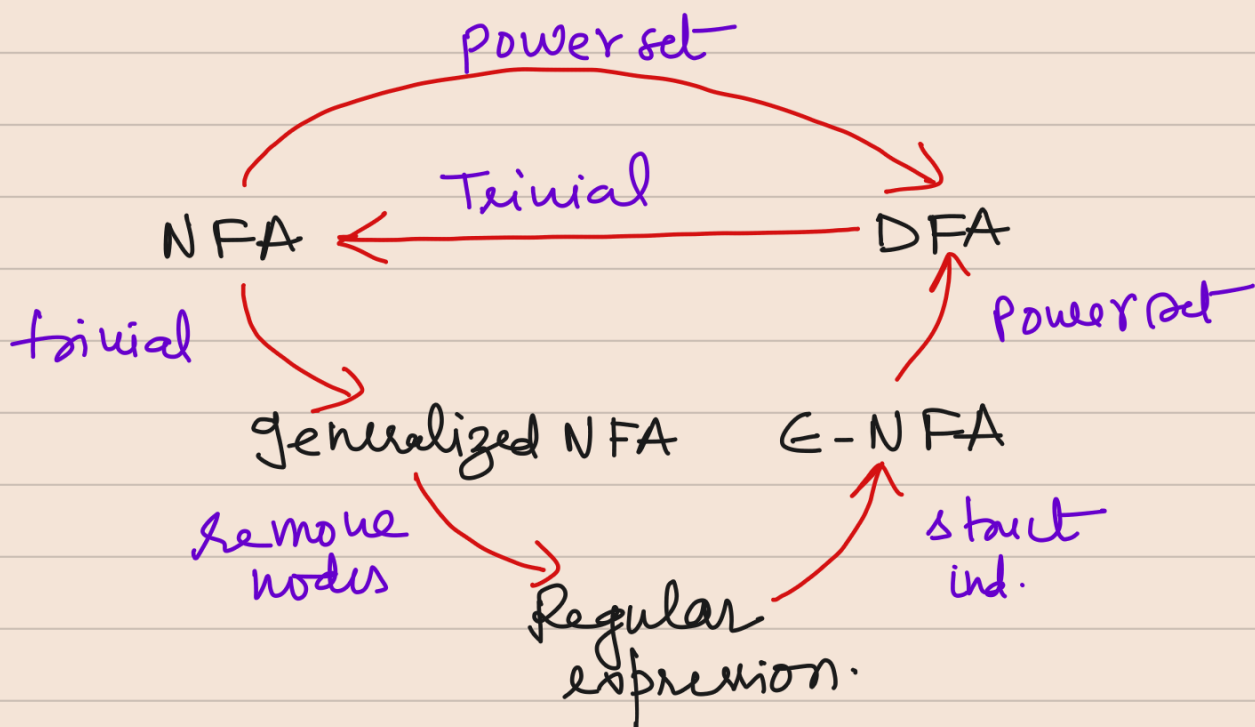 Powerset
Trivial
NFA
DFA
trivial
Powerset
generalized NFA
ϵ-NFA
remove
nodes
struct
ind.
Regular
expression.